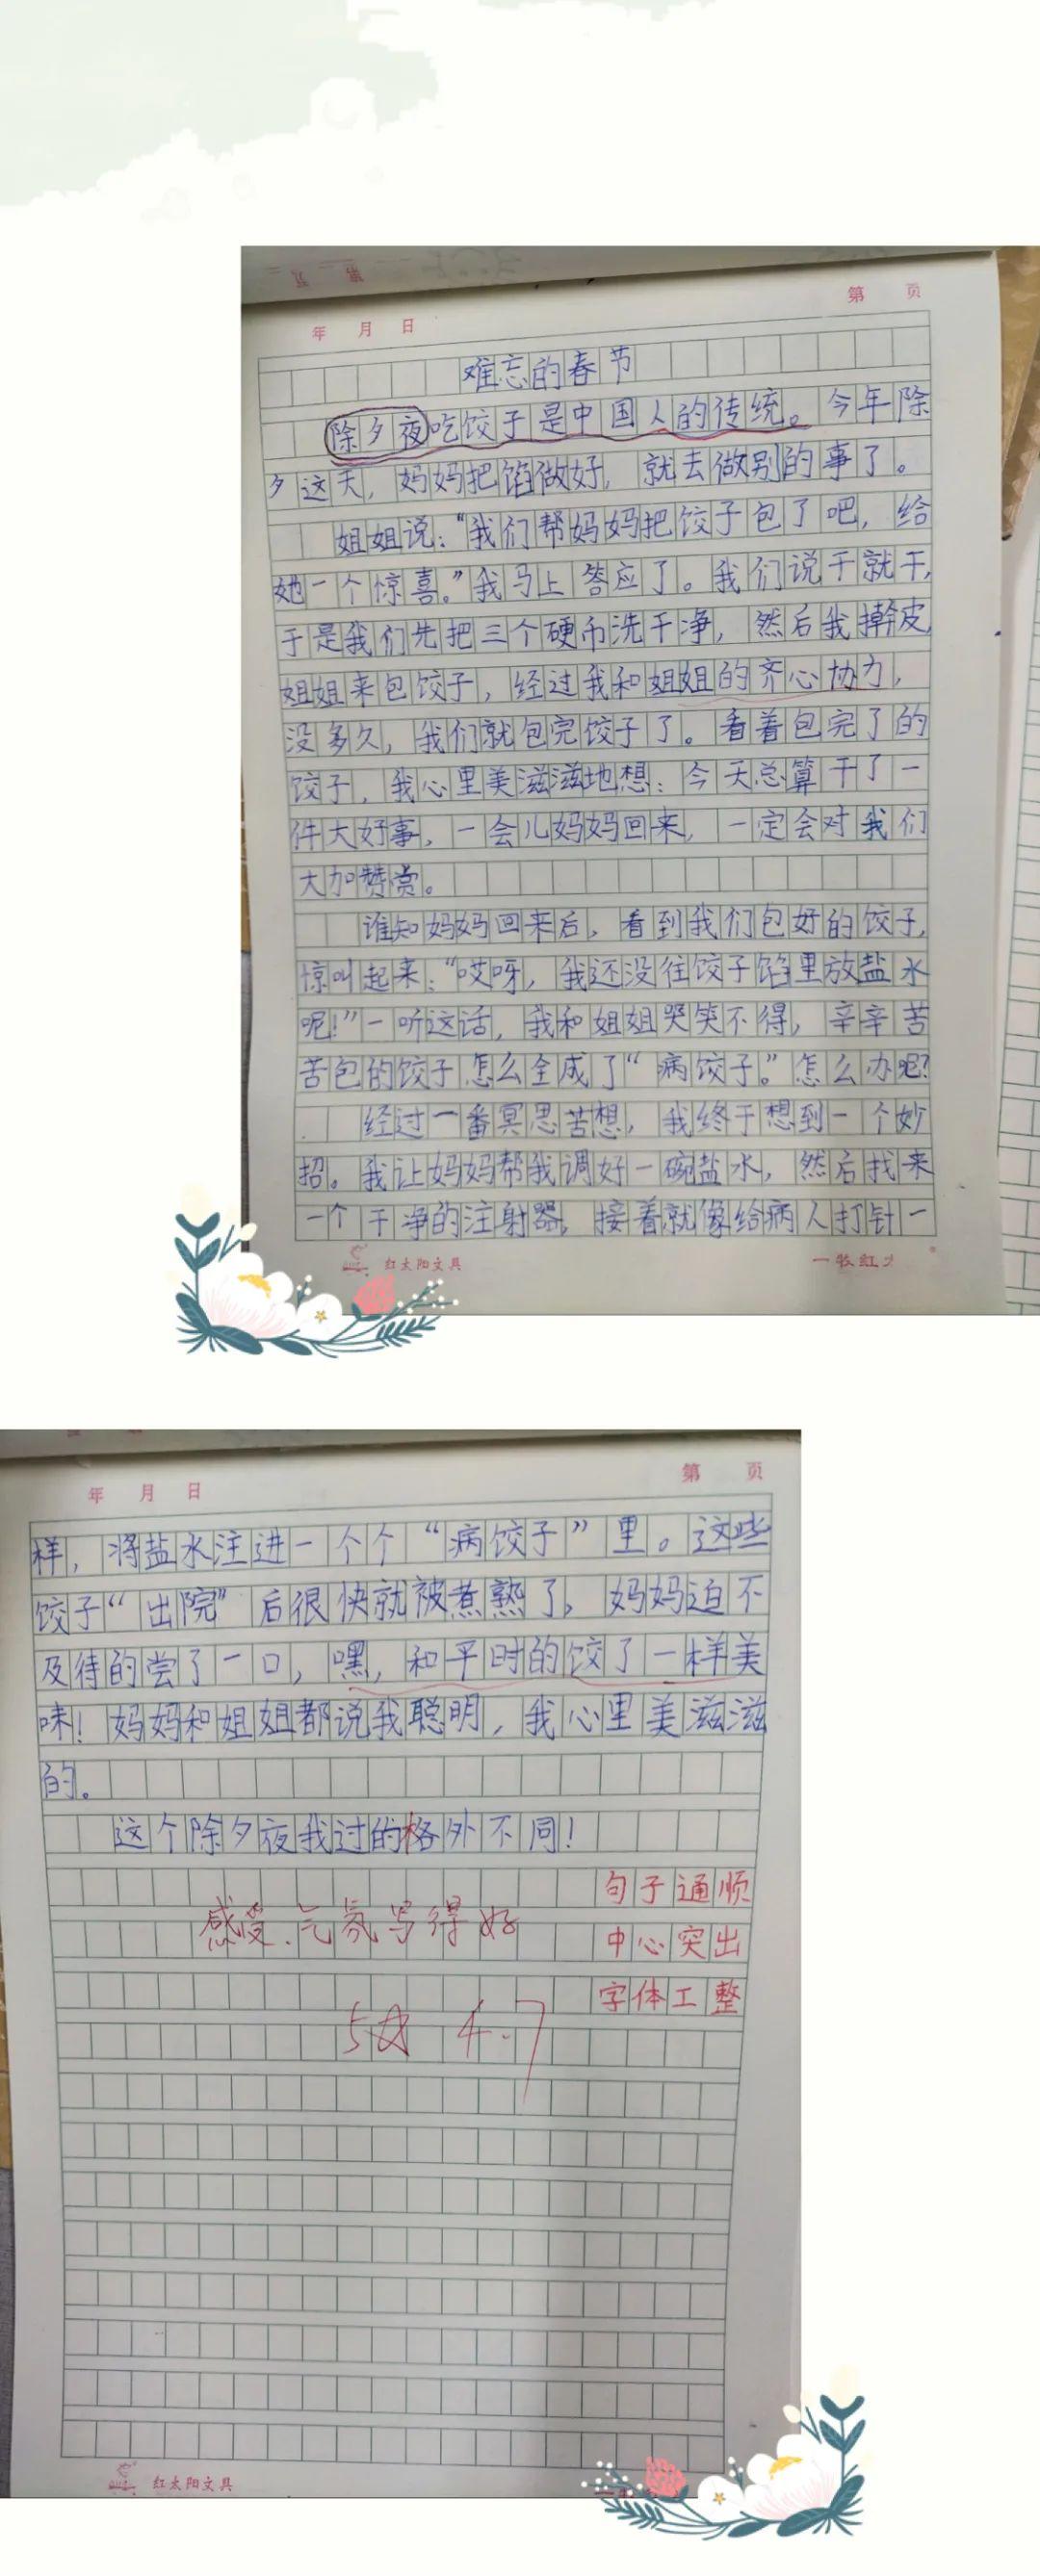 第 页
年 月 日
难忘的春节
除夕夜吃饺子是中国人的传统。今年除
夕这天，妈妈把馅做好，就去做别的事了。
姐姐说：“我们帮妈妈把饺子包了吧，给
她一个惊喜。”我马上答应了。我们说干就干，
于是我们先把三个硬币洗干净，然后我擀皮
姐姐来包饺子，经过我和姐姐的齐心协力，
没多久，我们就包完饺子了。看着包完了的
饺子，我心里美滋滋地想：今天总算干了一
件大好事，一会儿妈妈回来，一定会对我们
大加赞赏。
谁知妈妈回来后，看到我们包好的饺子，
惊叫起来：“哎呀，我还没往饺子馅里放盐水
呢！”一听这话，我和姐姐哭笑不得，辛辛苦
苦包的饺子怎么全成了“病饺子。”怎么办呢？
经过一番冥思苦想，我终于想到一个妙
招。我让妈妈帮我调好一碗盐水，然后找来
一个干净的注射器，接着就像给病人打针一
红太阳文具
年 月 日
第 页
样，将盐水注进一个个“病饺子”里。这些
饺子“出院”后很快就被煮熟了，妈妈迫不
及待的尝了一口，嘿，和平时的饺了一样美
味！妈妈和姐姐都说我聪明，我心里美滋滋
的。
这个除夕夜我过的格外不同！
句子通顺
感受、气氛写得好
中心突出
字体工整
5☆ 4.7
红太阳文具